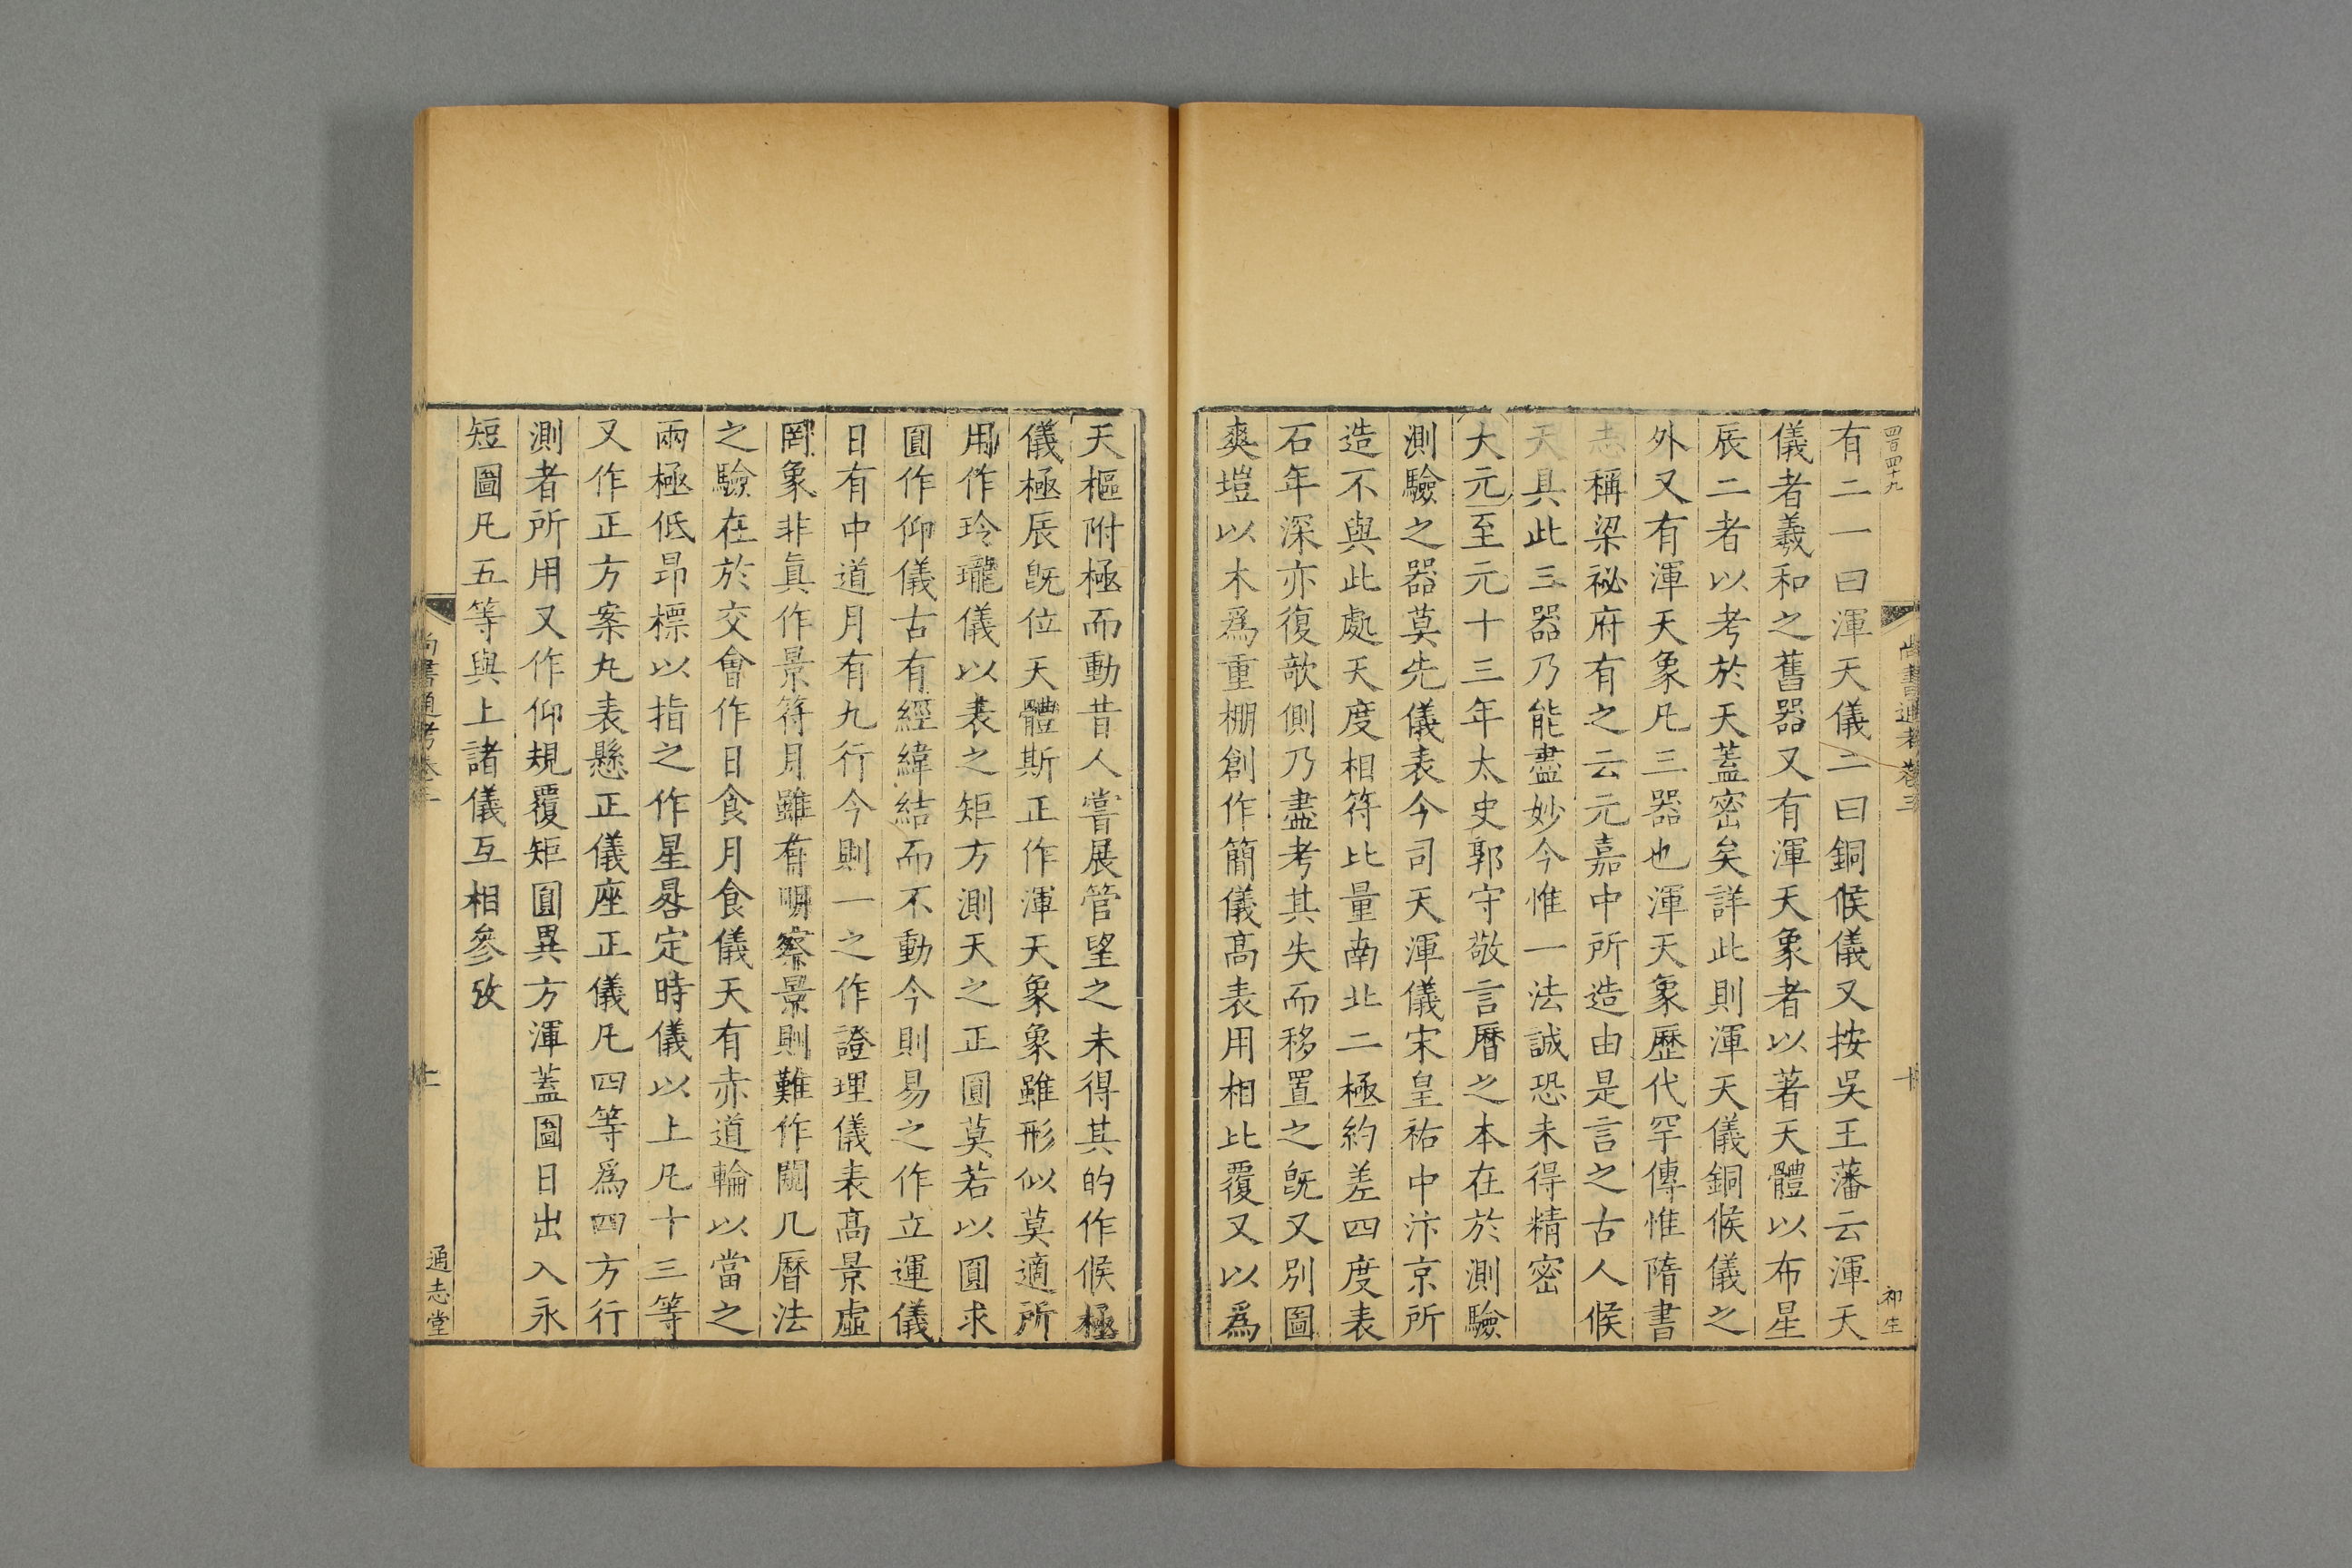 四百四十九
尚書通考卷三
十
初生
有二一曰渾天儀二曰銅候儀又按吳王藩云渾天
儀者羲和之舊器又有渾天象者以著天體以布星
辰二者以考於天蓋密矣詳此則渾天儀銅候儀之
外又有渾天象凡三器也渾天象歷代罕傳惟隋書
志稱梁祕府有之云元嘉中所造由是言之古人候
天具此三器乃能盡妙今惟一法誠恐未得精密
大元至元十三年太史郭守敬言曆之本在於測驗
測驗之器莫先儀表今司天渾儀宋皇祐中汴京所
造不與此處天度相符比量南北二極約差四度表
石年深亦復欹側乃盡考其失而移置之旣又別圖
爽塏以木爲重棚創作簡儀高表用相比覆又以爲
天樞附極而動昔人嘗展管望之未得其的作候極
儀極辰旣位天體斯正作渾天象象雖形似莫適所
用作玲瓏儀以表之矩方測天之正圓莫若以圓求
圓作仰儀古有經緯結而不動今則易之作立運儀
日有中道月有九行今則一之作證理儀表高景虛
罔象非眞作景符月雖有明察景則難作闚几曆法
之驗在於交會作日食月食儀天有赤道輪以當之
兩極低昂標以指之作星晷定時儀以上凡十三等
又作正方案丸表懸正儀座正儀凡四等爲四方行
測者所用又作仰規覆矩圓異方渾蓋圖日出入永
短圖凡五等與上諸儀互相參攷
尚書通考卷三
十一
通志堂